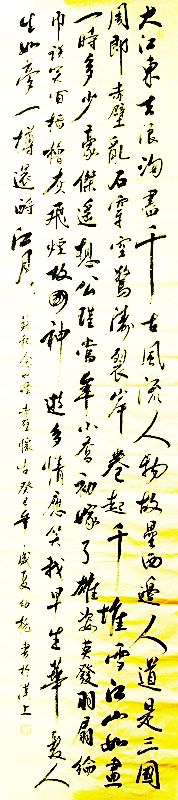 大江東去浪淘盡千古風流人物故壘西邊人道是三國
周郎赤壁亂石穿空驚濤裂岸卷起千堆雪江山如畫
一時多少豪傑遙想公瑾當年小喬初嫁了雄姿英發羽扇綸
巾談笑間檣櫓灰飛煙故國神遊多情應笑我早生華髮人
生如夢一樽還酹江月
赤壁懷古癸巳年盛夏